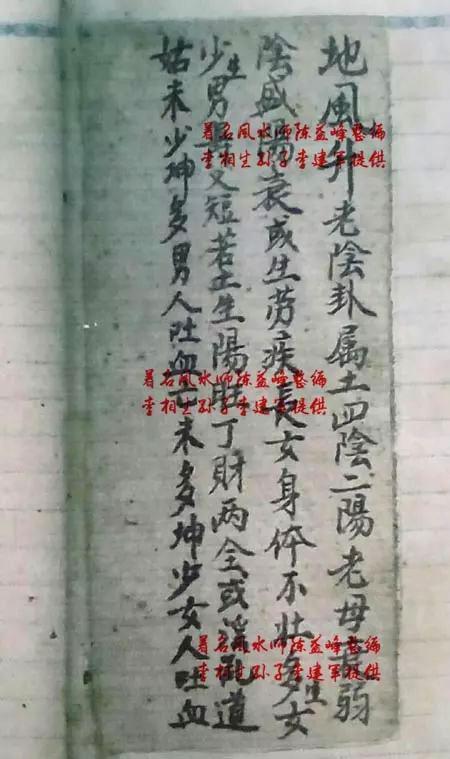 地風升老陰卦属土四陰二陽老母弱
陰盛陽衰或生劳疾長女身体不壮多生女
少生男又短若土生陽旺丁財两全或乱道
姑未少坤多男人吐血未多坤少女人吐血
著名风水师陈益峰整编
李相生孙子李建军提供
著名风水师陈益峰整编
李相生孙子李建军提供
著名风水师陈益峰整编
李相生孙子李建军提供